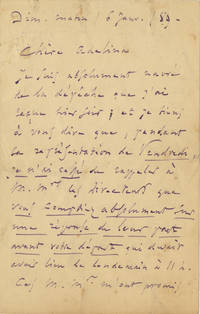 Dim. matin 6 janv. 89.
Chère Adelina
Je suis absolument navré
de la dépêche que j'ai
reçue hier soir ; et je tiens
à vous dire que, pendant
la représentation de Vendredi,
je n'ai cessé de rappeler à
M. Mrs les directeurs que
vous comptiez absolument sur
une réponse de leur part
avant votre départ qui devait
avoir lieu le lendemain à 11 h.
Ces M. Mrs m'ont promis